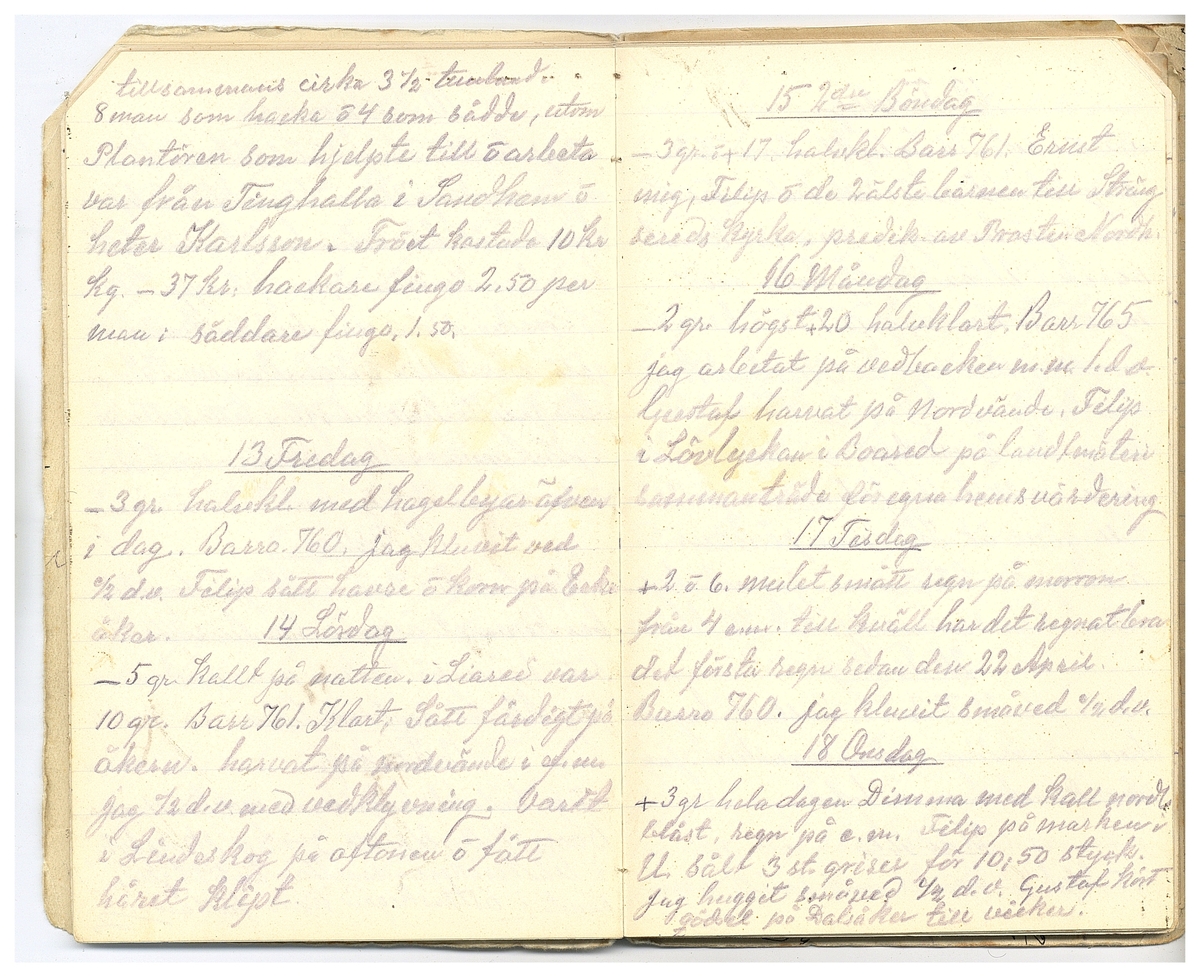 tillsammans cirka 3 1/2 tunland.
8 man som hacka ō 4 som sådde, utom
Plantören som hjelpte till ō arbeta
var från Tinghalla i Sandhem ō
heter Karlsson. Fröet kostade 10 kr
kg. – 37 kr. hackare fingo 2.50 per
man i såddare fingo. 1.50.
13 Fredag
– 3 gr. halvkl. med hagelbyar äfven
i dag. Barro. 760. jag kluvit ved
1/2 d.v. Filip sått havre ō korn på
åker.
14 Lördag
– 5 gr. kallt på natten. i Liared var
10 gr. Barr 761. Klart. Sått färdigt på
åkern. harvat på nordvände i e.m
jag 1/2 d.v. med vedklyvning. varit
i Lindeskog på aftonen ō fått
håret klipt
15 2dra Böndag
– 3 gr. ō + 17. halvkl. Barr 761. Ernst
mig, Filip ō de 2 älsta bärnen till Sträng
sereds kyrka, predik. av Prosten Nordh.
16 Måndag
– 2 gr. högst + 20 halvklart. Barr 765
jag arbetat på vedbacken m.m. 1. d.v.
Gustaf harvat på Nordvände. Filip
i Lövlyckan i Boared på landtmäteri
sammanträde för egna hems värdering
17 Tisdag
+ 2 ō 6. mulet smått regn på morron
från 4 e.m. till kväll har det regnat bra
det första regn sedan den 22 April.
Barro 760. jag kluvit småved 1/2 d.v.
18 Onsdag
+ 3 gr hela dagen Dimma med kall nordl.
blåst, regn på e.m. Filip på marken i
U. sålt 3 st. griser för 10,50 styck.
jag hugget småved 1/2 d.v. Gustaf kört
gödsel på Dalsåker till vicker.